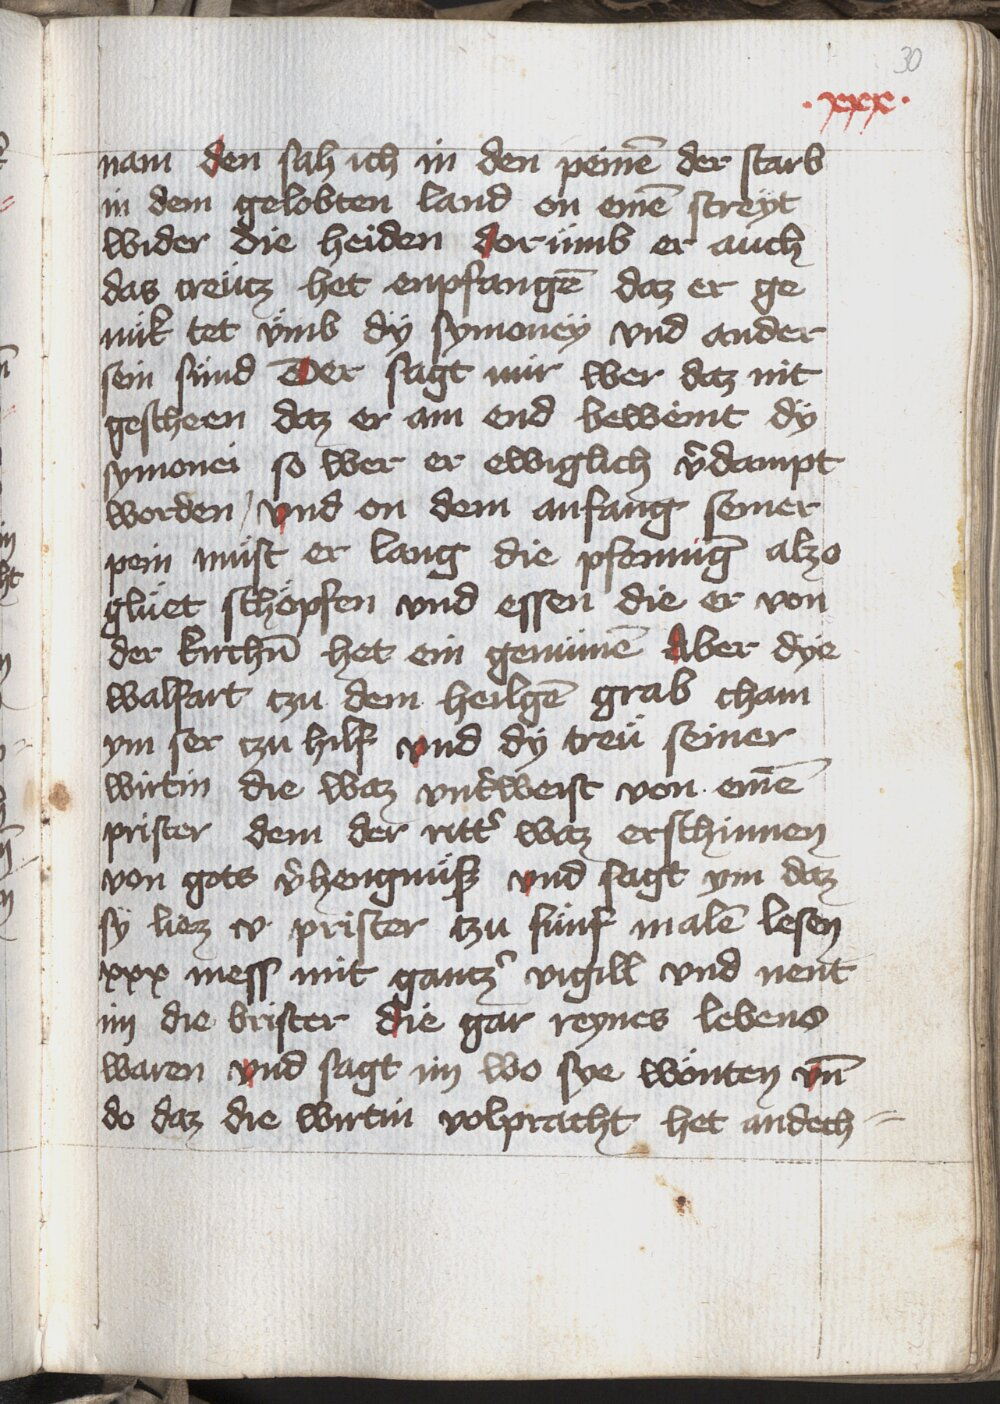 30
·xxx·
nam den sah ich in den peinē der starb
in dem gelobten land on einē streÿt
wider die heiden dorümb er auch
das creütz het enpfangē daz er ge
nük tet ümb dÿ symoneÿ vnd ander
sein sünd Der sagt mir wer daz nit
gescheen daz er am end beweint dÿ
symonei so wer er ewiglich v̄dampt
worden / vnd on dem anfang seiner
pein müst er lang die pfenning alzo
glüet schöpfen vnd essen die er von
der kirchn̄ het ein genümē Aber dye
walfart tzu dem heilgē grab cham
ym ser tzu hilf vnd dÿ treü seiner
wirtin die waz vnt̄weist von einē
prister dem der ritt̄ waz erschinnen
von gots v̄hengnüß vnd sagt ym daz
sÿ liez v prister tzu fünf malē lesen
xxx mess mit gantz̄ vigill vnd nent
im die brister die gar reynes lebens
waren vnd sagt im wo sye wönten vn̄
do daz die wirtin volpracht het andech=